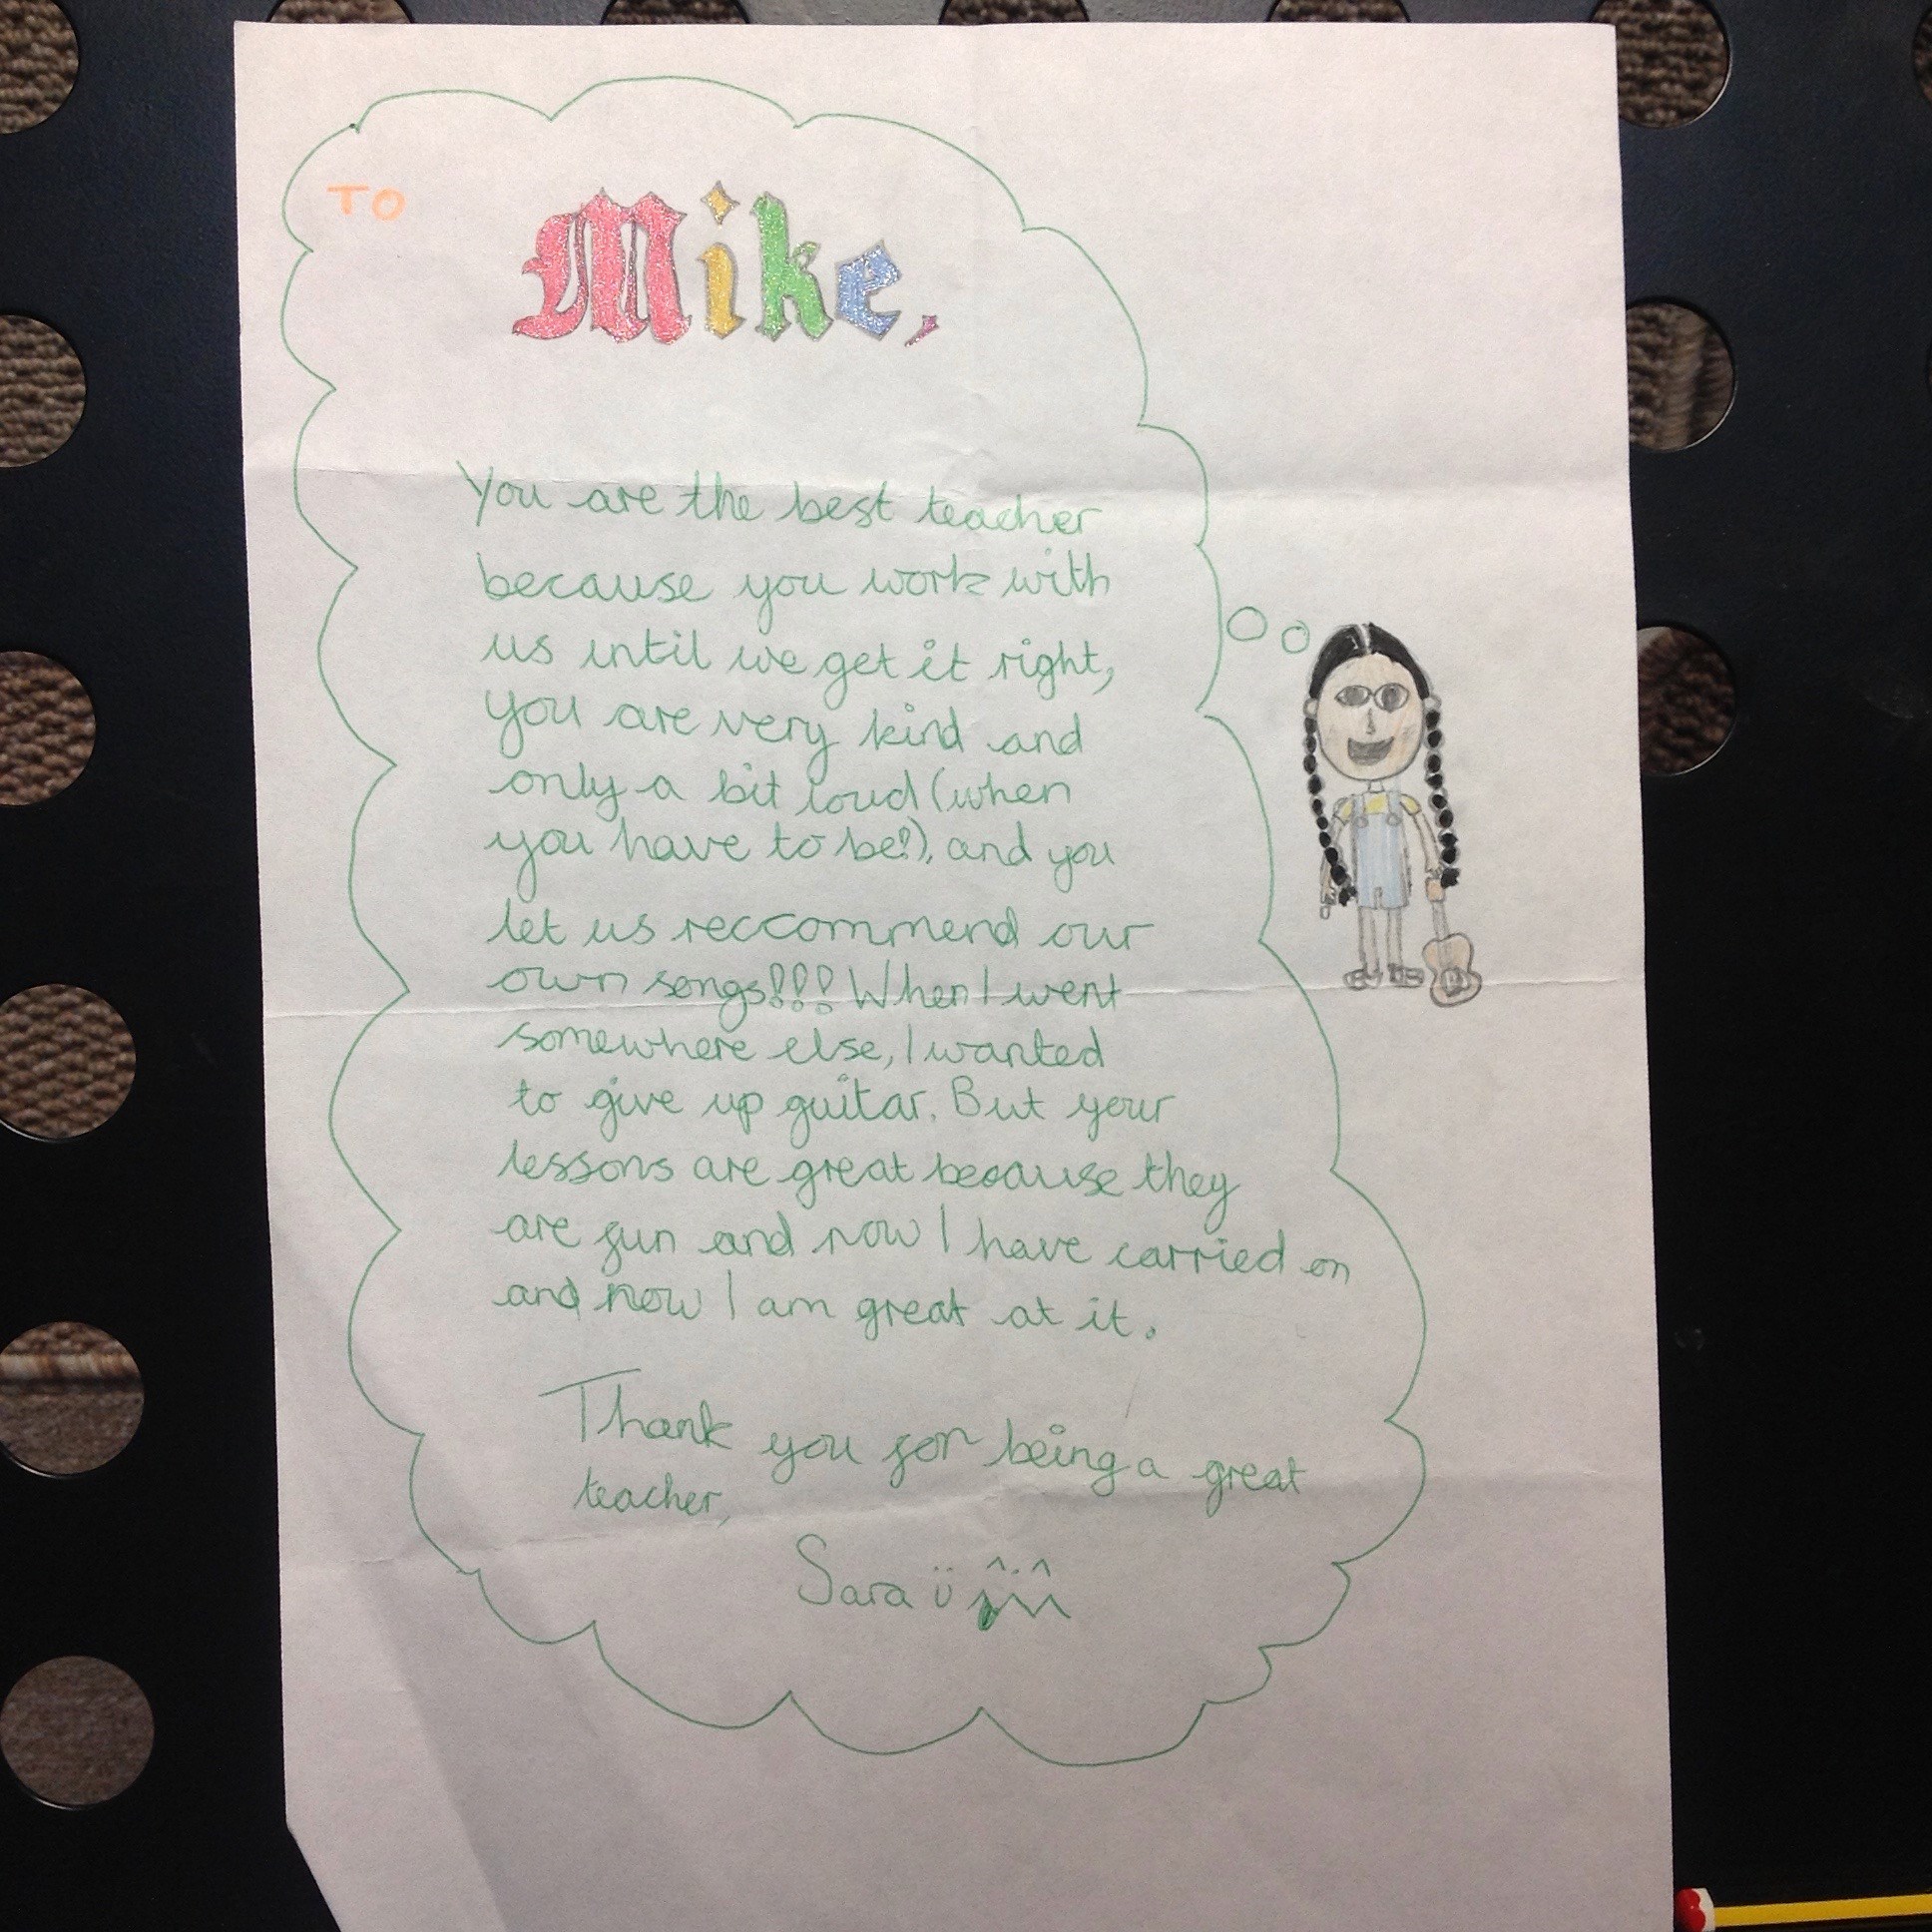 TO
Mike,
You are the best teacher
because you work with
us until we get it right,
you are very kind and
only a bit loud (when
you have to be!), and you
let us reccommend our
own songs!!! When I went
somewhere else, I wanted
to give up guitar. But your
lessons are great because they
are fun and now I have carried on
and now I am great at it.
Thank you for being a great
teacher,
Sara ü